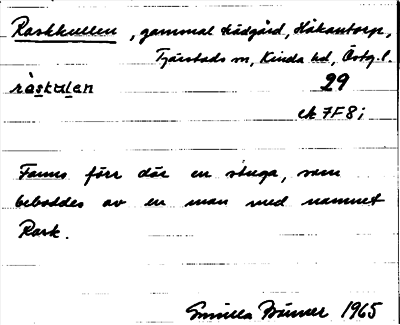 Raskkullen, gammal trädgård, Håkantorp,
Tjärstads sn, Kinda hd, Östg. l.
ràskulen 29
ek 7F8i
Fanns förr där en stuga, som
beboddes av en man med namnet
Rask.
Gunilla 1965